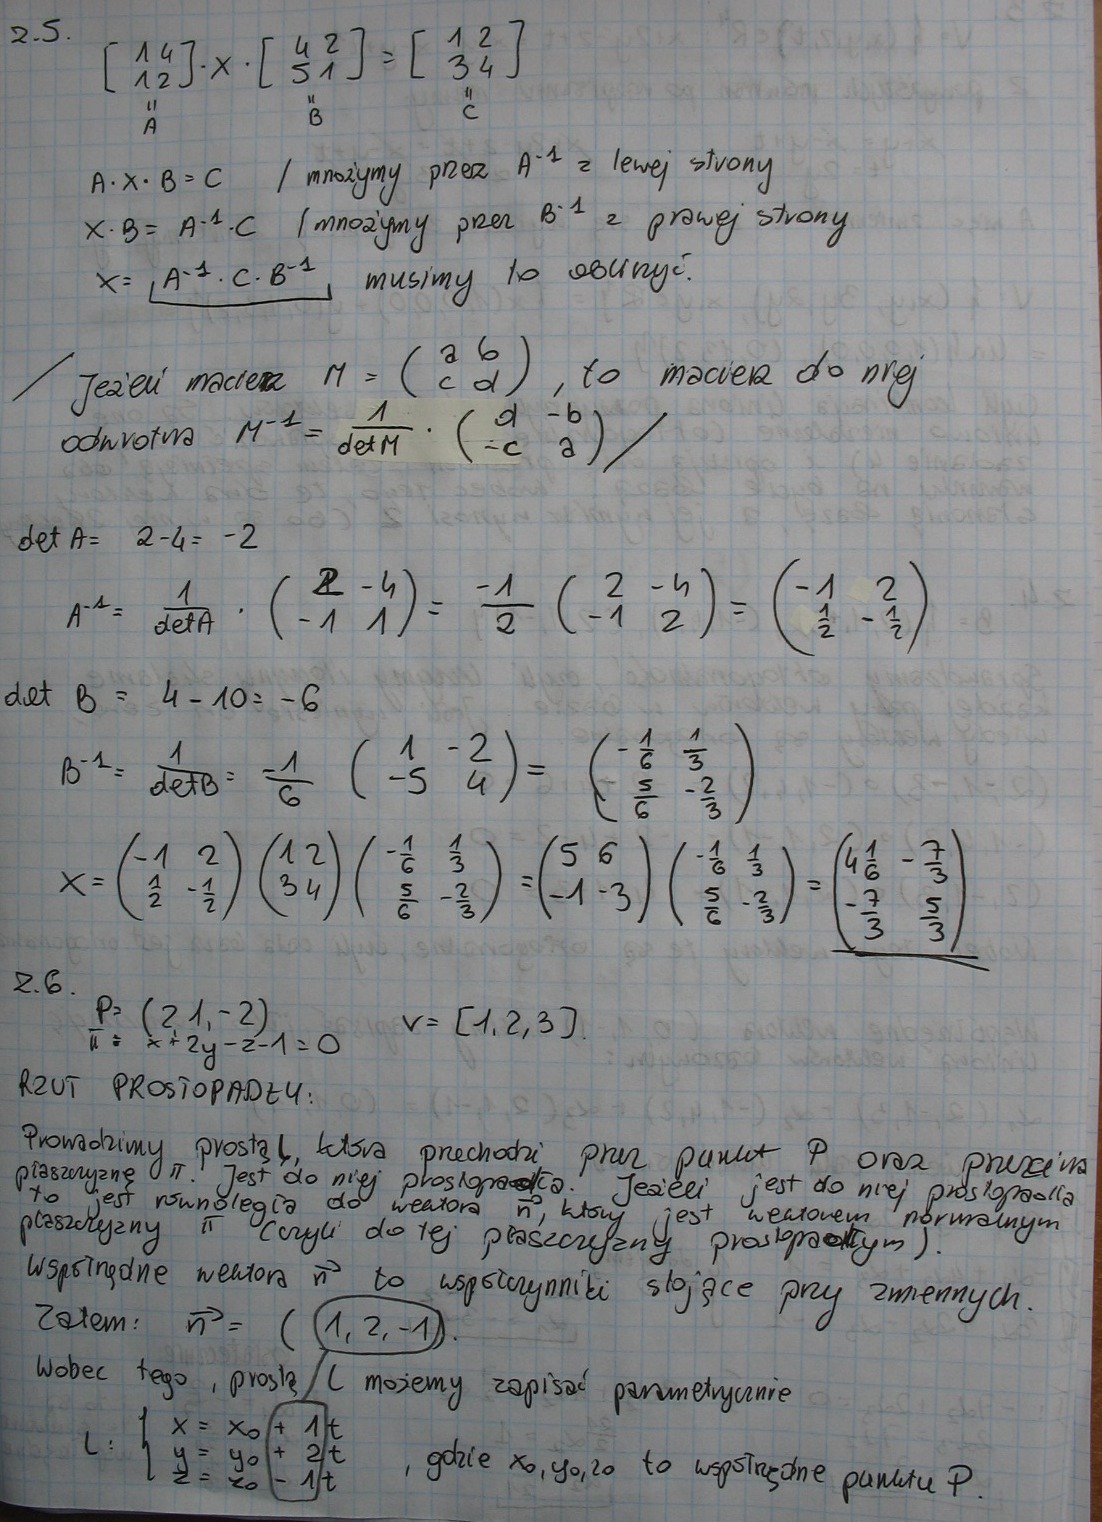 z.5.
[1 4 / 1 2] · X · [4 2 / 5 1] = [1 2 / 3 4]
" " "
A B C
A·X·B = C / mnożymy przez A⁻¹ z lewej strony
X·B = A⁻¹·C / mnożymy przez B⁻¹ z prawej strony
X = A⁻¹·C·B⁻¹ musimy to obliczyć.
/ Jeżeli macierz M = (a b / c d), to macierz do niej
odwrotna M⁻¹ = 1/detM · (d -b / -c a) /
det A = 2-4 = -2
A⁻¹ = 1/detA · (2 -4 / -1 1) = -1/2 (2 -4 / -1 2) = (-1 2 / 1/2 -1/2)
det B = 4-10 = -6
B⁻¹ = 1/detB = -1/6 (1 -2 / -5 4) = (-1/6 1/3 / 5/6 -2/3)
X = (-1 2 / 1/2 -1/2) (1 2 / 3 4) (-1/6 1/3 / 5/6 -2/3) = (5 6 / -1 -3) (-1/6 1/3 / 5/6 -2/3) = (4 1/6 -7/3 / -7/3 5/3)
z.6.
P = (2, 1, -2) v = [1, 2, 3].
π = x+2y-z-1=0
RZUT PROSTOPADŁY:
Prowadzimy prostą l, która przechodzi przez punkt P oraz przecina
płaszczyznę π. Jest do niej prostopadła. Jeżeli jest do niej prostopadła
to jest równoległa do wektora n⃗, który jest wektorem normalnym
płaszczyzny π (czyli do tej płaszczyzny prostopadłym).
Współrzędne wektora n⃗ to współczynniki stojące przy zmiennych.
Zatem: n⃗ = (1, 2, -1).
Wobec tego, prostą l możemy zapisać parametrycznie
x = x₀ + 1t
l: { y = y₀ + 2t , gdzie x₀, y₀, z₀ to współrzędne punktu P.
z = z₀ - 1t